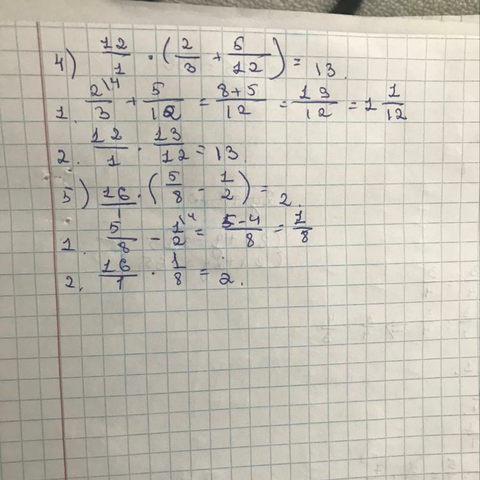 4) 12/1 · (2/3 + 5/12) = 13.
1. 2/3 \4 + 5/12 = 8+5/12 = 13/12 = 1 1/12
2. 12/1 · 13/12 = 13.
5) 16/1 · (5/8 - 1/2) = 2.
1. 5/8 - 1/2 \4 = 5-4/8 = 1/8
2. 16/1 · 1/8 = 2.